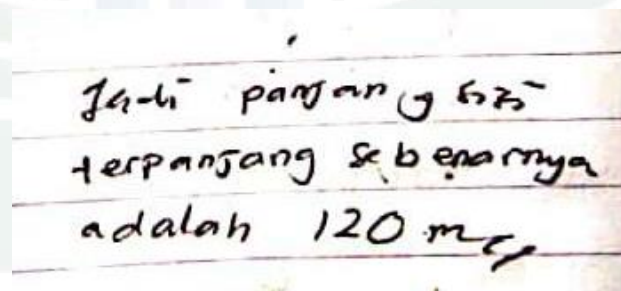 Jadi panjang sisi
terpanjang sebenarnya
adalah 120 m